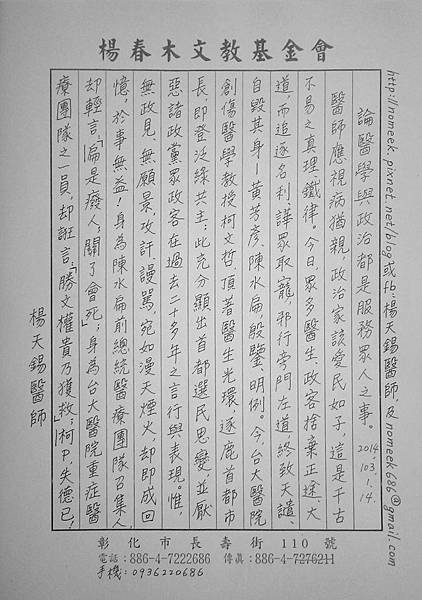 楊春木文教基金會
http://nomeek.pixnet.net/blog或fb:楊天錫醫師,及nomeek686@gmail.com
論醫學與政治都是服務眾人之事。2014.103.1.14.
醫師應視病猶親,政治家該愛民如子,這是千古
不易之真理鐵律。今日,眾多醫生政客捨棄正途、大
道,而追逐名利、譁眾取寵,邪行旁門左道終致天譴、
自毀其身—黃芳彥、陳水扁殷鑒、明例。今,台大醫院
創傷醫學教授柯文哲,頂著醫生光環,逐鹿首都市
長,即登泛綠共主;此充分顯出首都選民思變並厭
惡諸政黨眾政客在過去二十多年之言行與表現。惟,
無政見、無願景,攻訐、謾罵,宛如漫天煙火,却即成回
憶,於事無益!身為陳水扁前總統醫療團隊召集人,
却輕言:「扁是廢人,關了會死」;身為台大醫院重症醫
療團隊之一員,却誑言:「勝文權貴乃獲救」;柯P,失德已!
楊天錫醫師
彰化市長壽街110號
電話:886-4-7222686 傳真:886-4-7276211
手機:0936220686